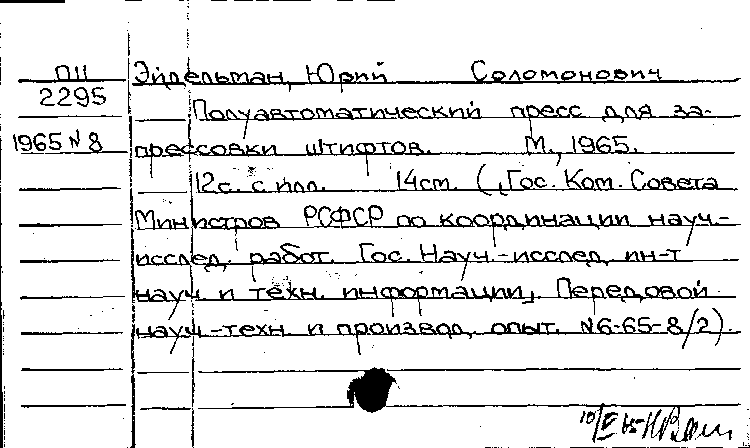 ПII Эйдельман, Юрий Соломонович
2295 Полуавтоматический пресс для за-
1965 N 8 прессовки штифтов. М., 1965.
12с. с илл. 14см. („Гос. Ком. Совета
Министров РСФСР по координации науч.-
исслед. работ. Гос. Науч.-исслед. ин-т
науч. и техн. информации„. Передовой
науч.-техн. и производ. опыт. N6-65-8/2).